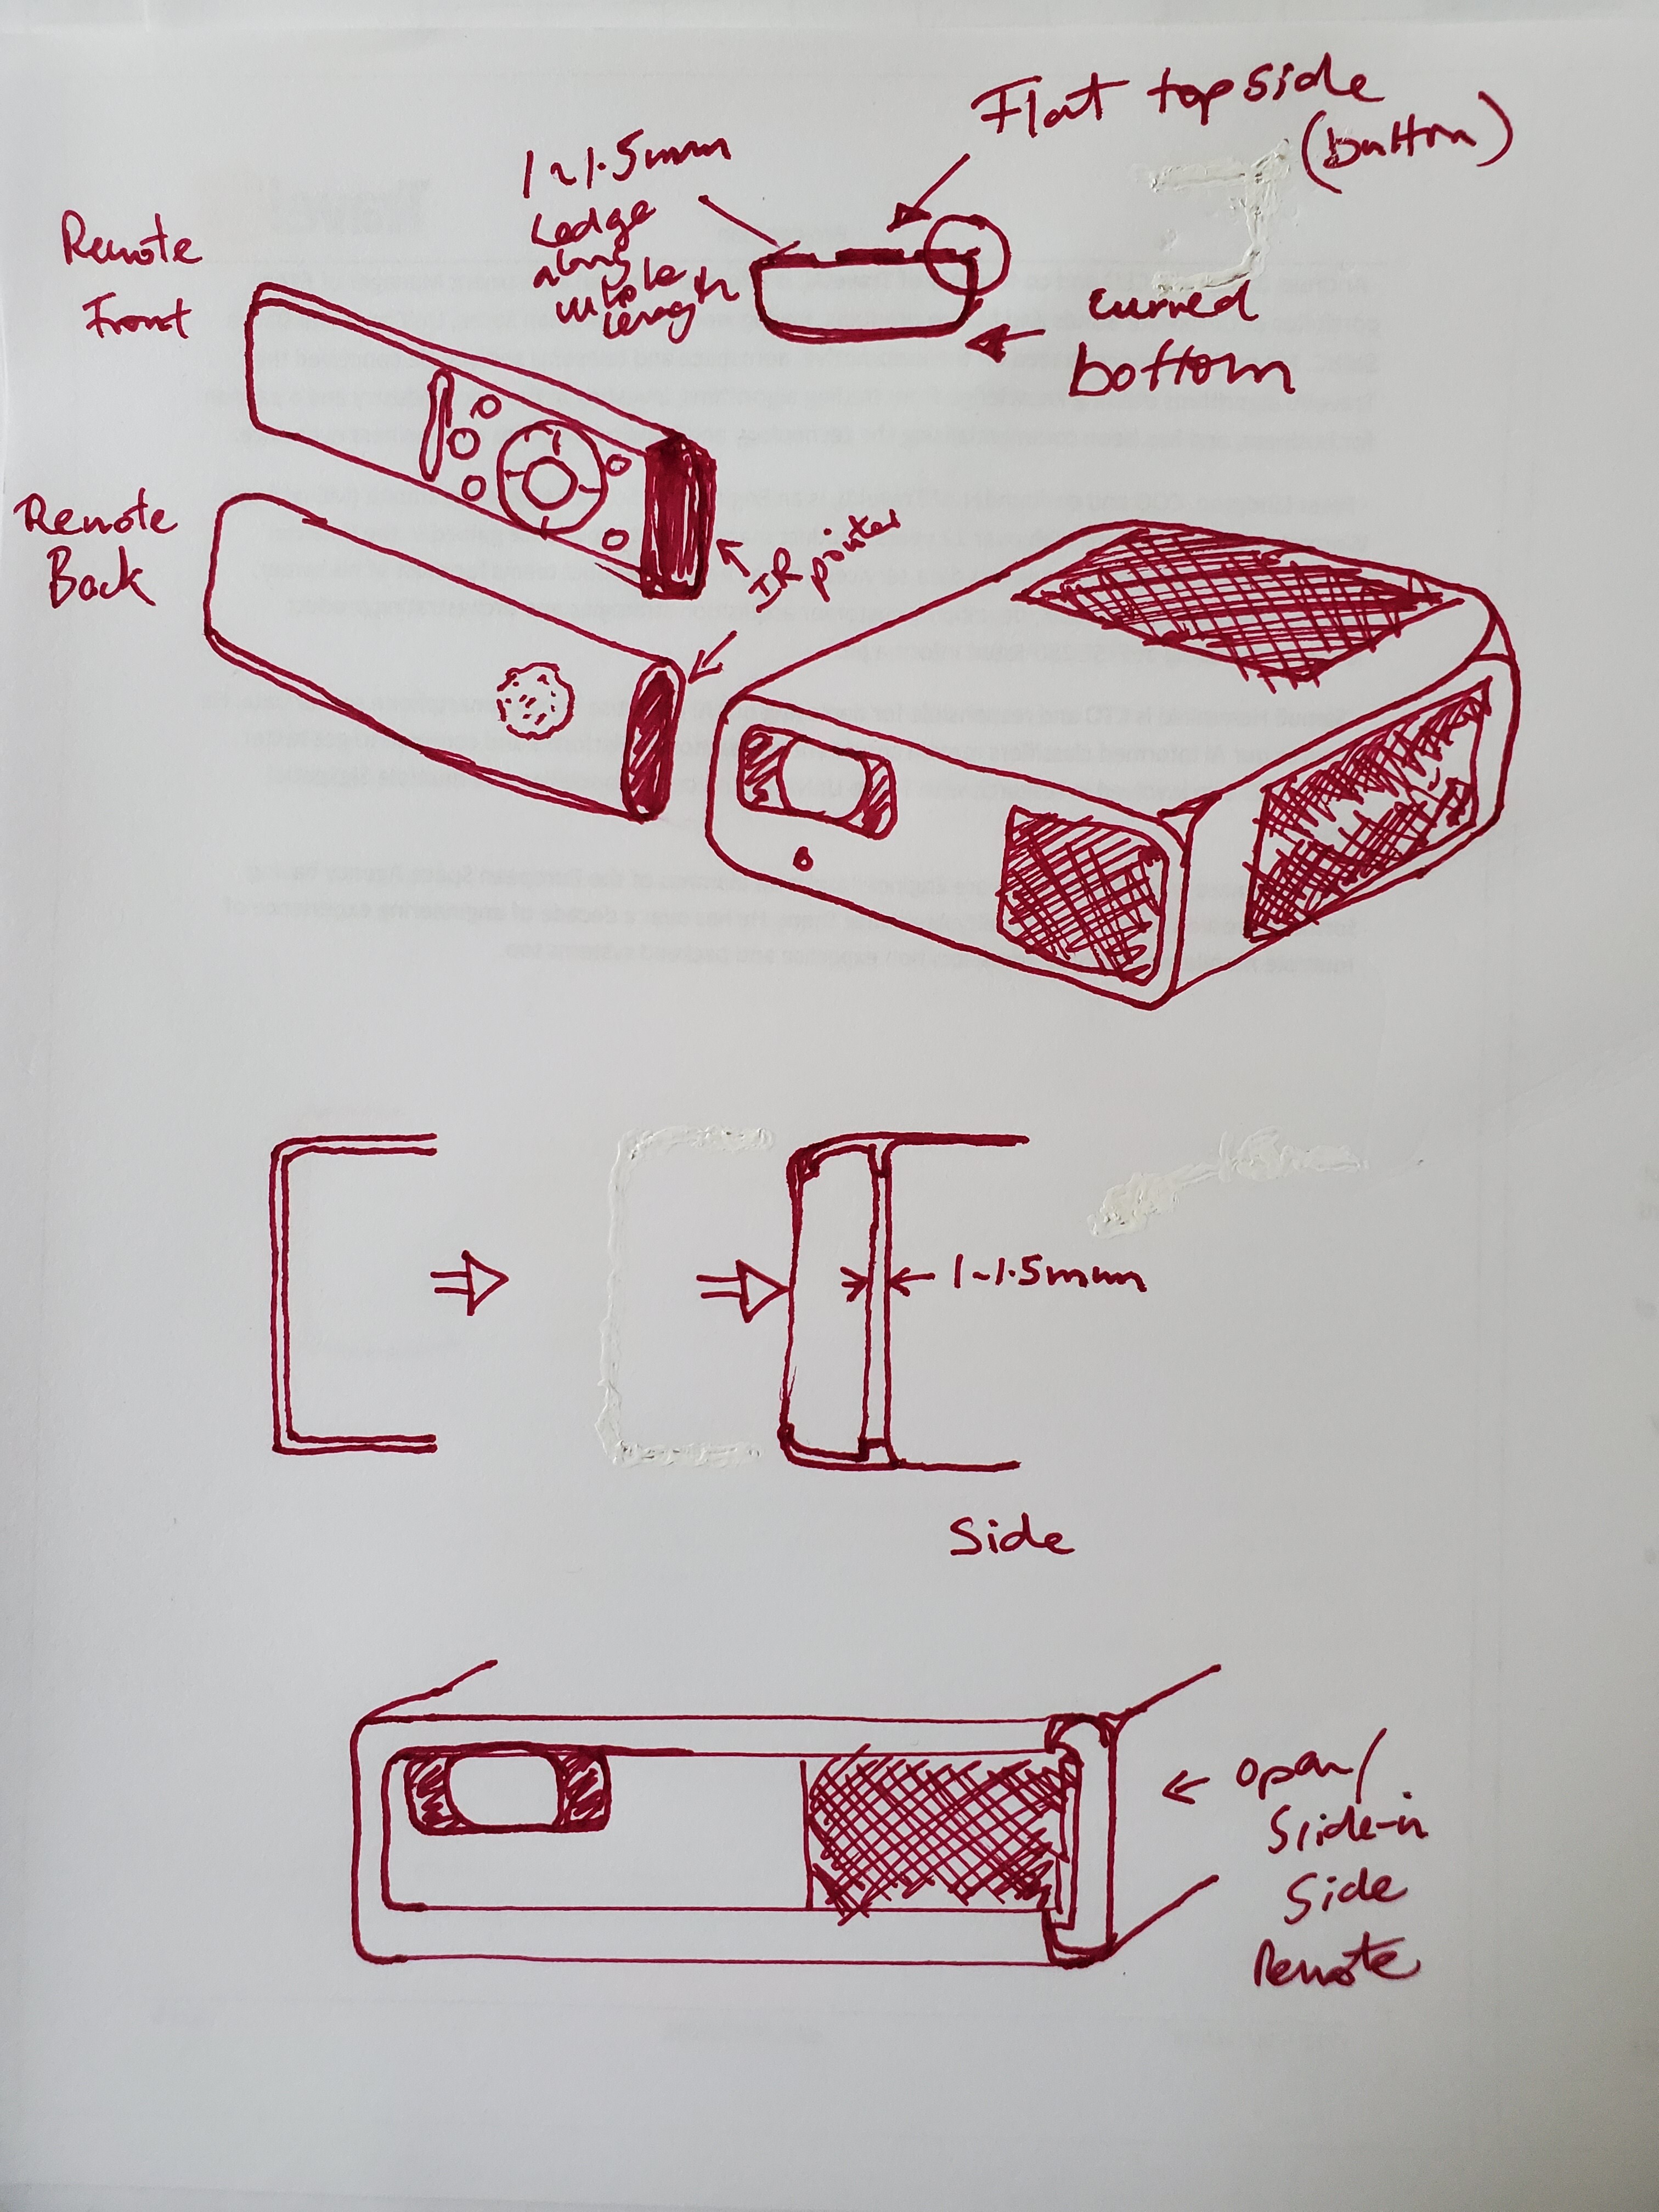 Flat topside
(button)
1~1.5mm
Ledge
along
whole
length
Remote
Front
curved
bottom
Remote
Back
IR pointer
1~1.5mm
Side
open/
Slide-in
Side
Remote